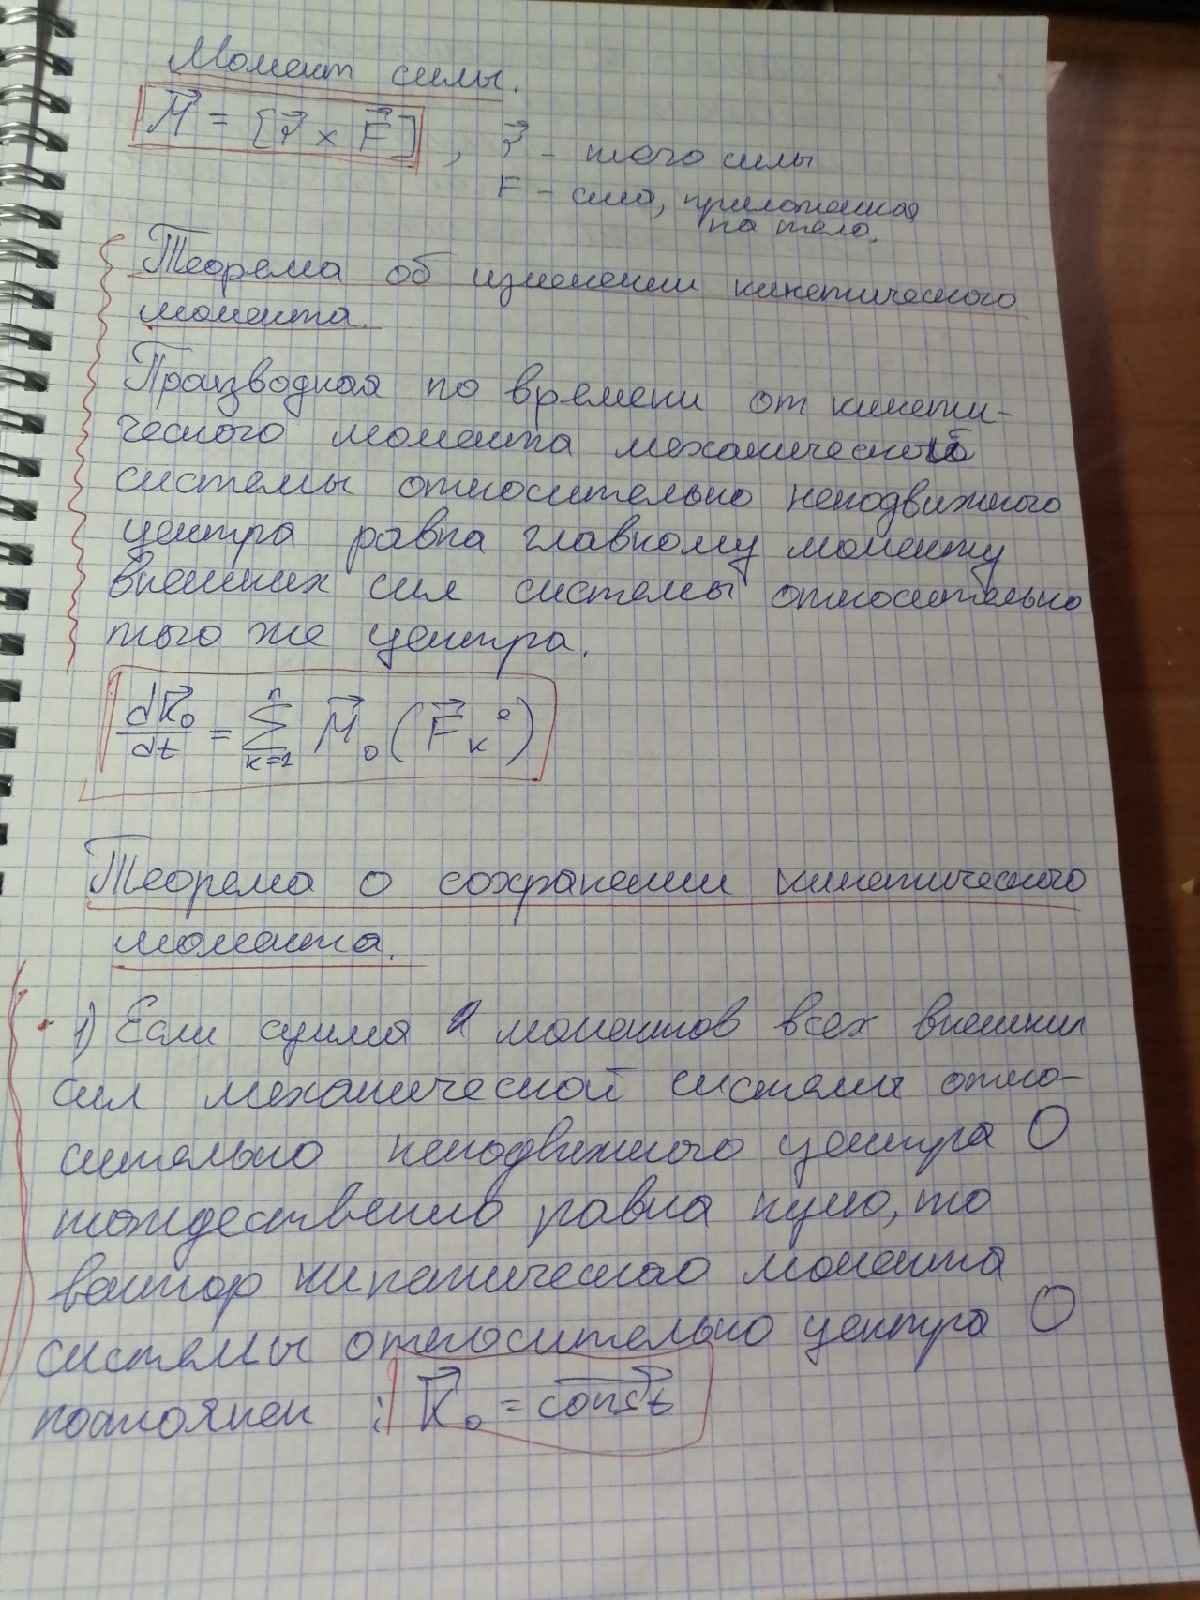 Момент силы.
M⃗ = [r⃗ × F⃗], r⃗ – плечо силы
F – сила, приложенная
на тело.
Теорема об изменении кинетического
момента.
Производная по времени от кинети-
ческого момента механической
системы относительно неподвижного
центра равна главному моменту
внешних сил системы относительно
того же центра.
dK⃗₀/dt = Σ_{k=1}^{n} M⃗₀(F⃗ₖᵉ)
Теорема о сохранении кинетического
момента.
1) Если сумма моментов всех внешних
сил механической системы отно-
сительно неподвижного центра О
тождественно равна нулю, то
вектор кинетического момента
системы относительно центра О
постоянен : K⃗₀ = const⃗